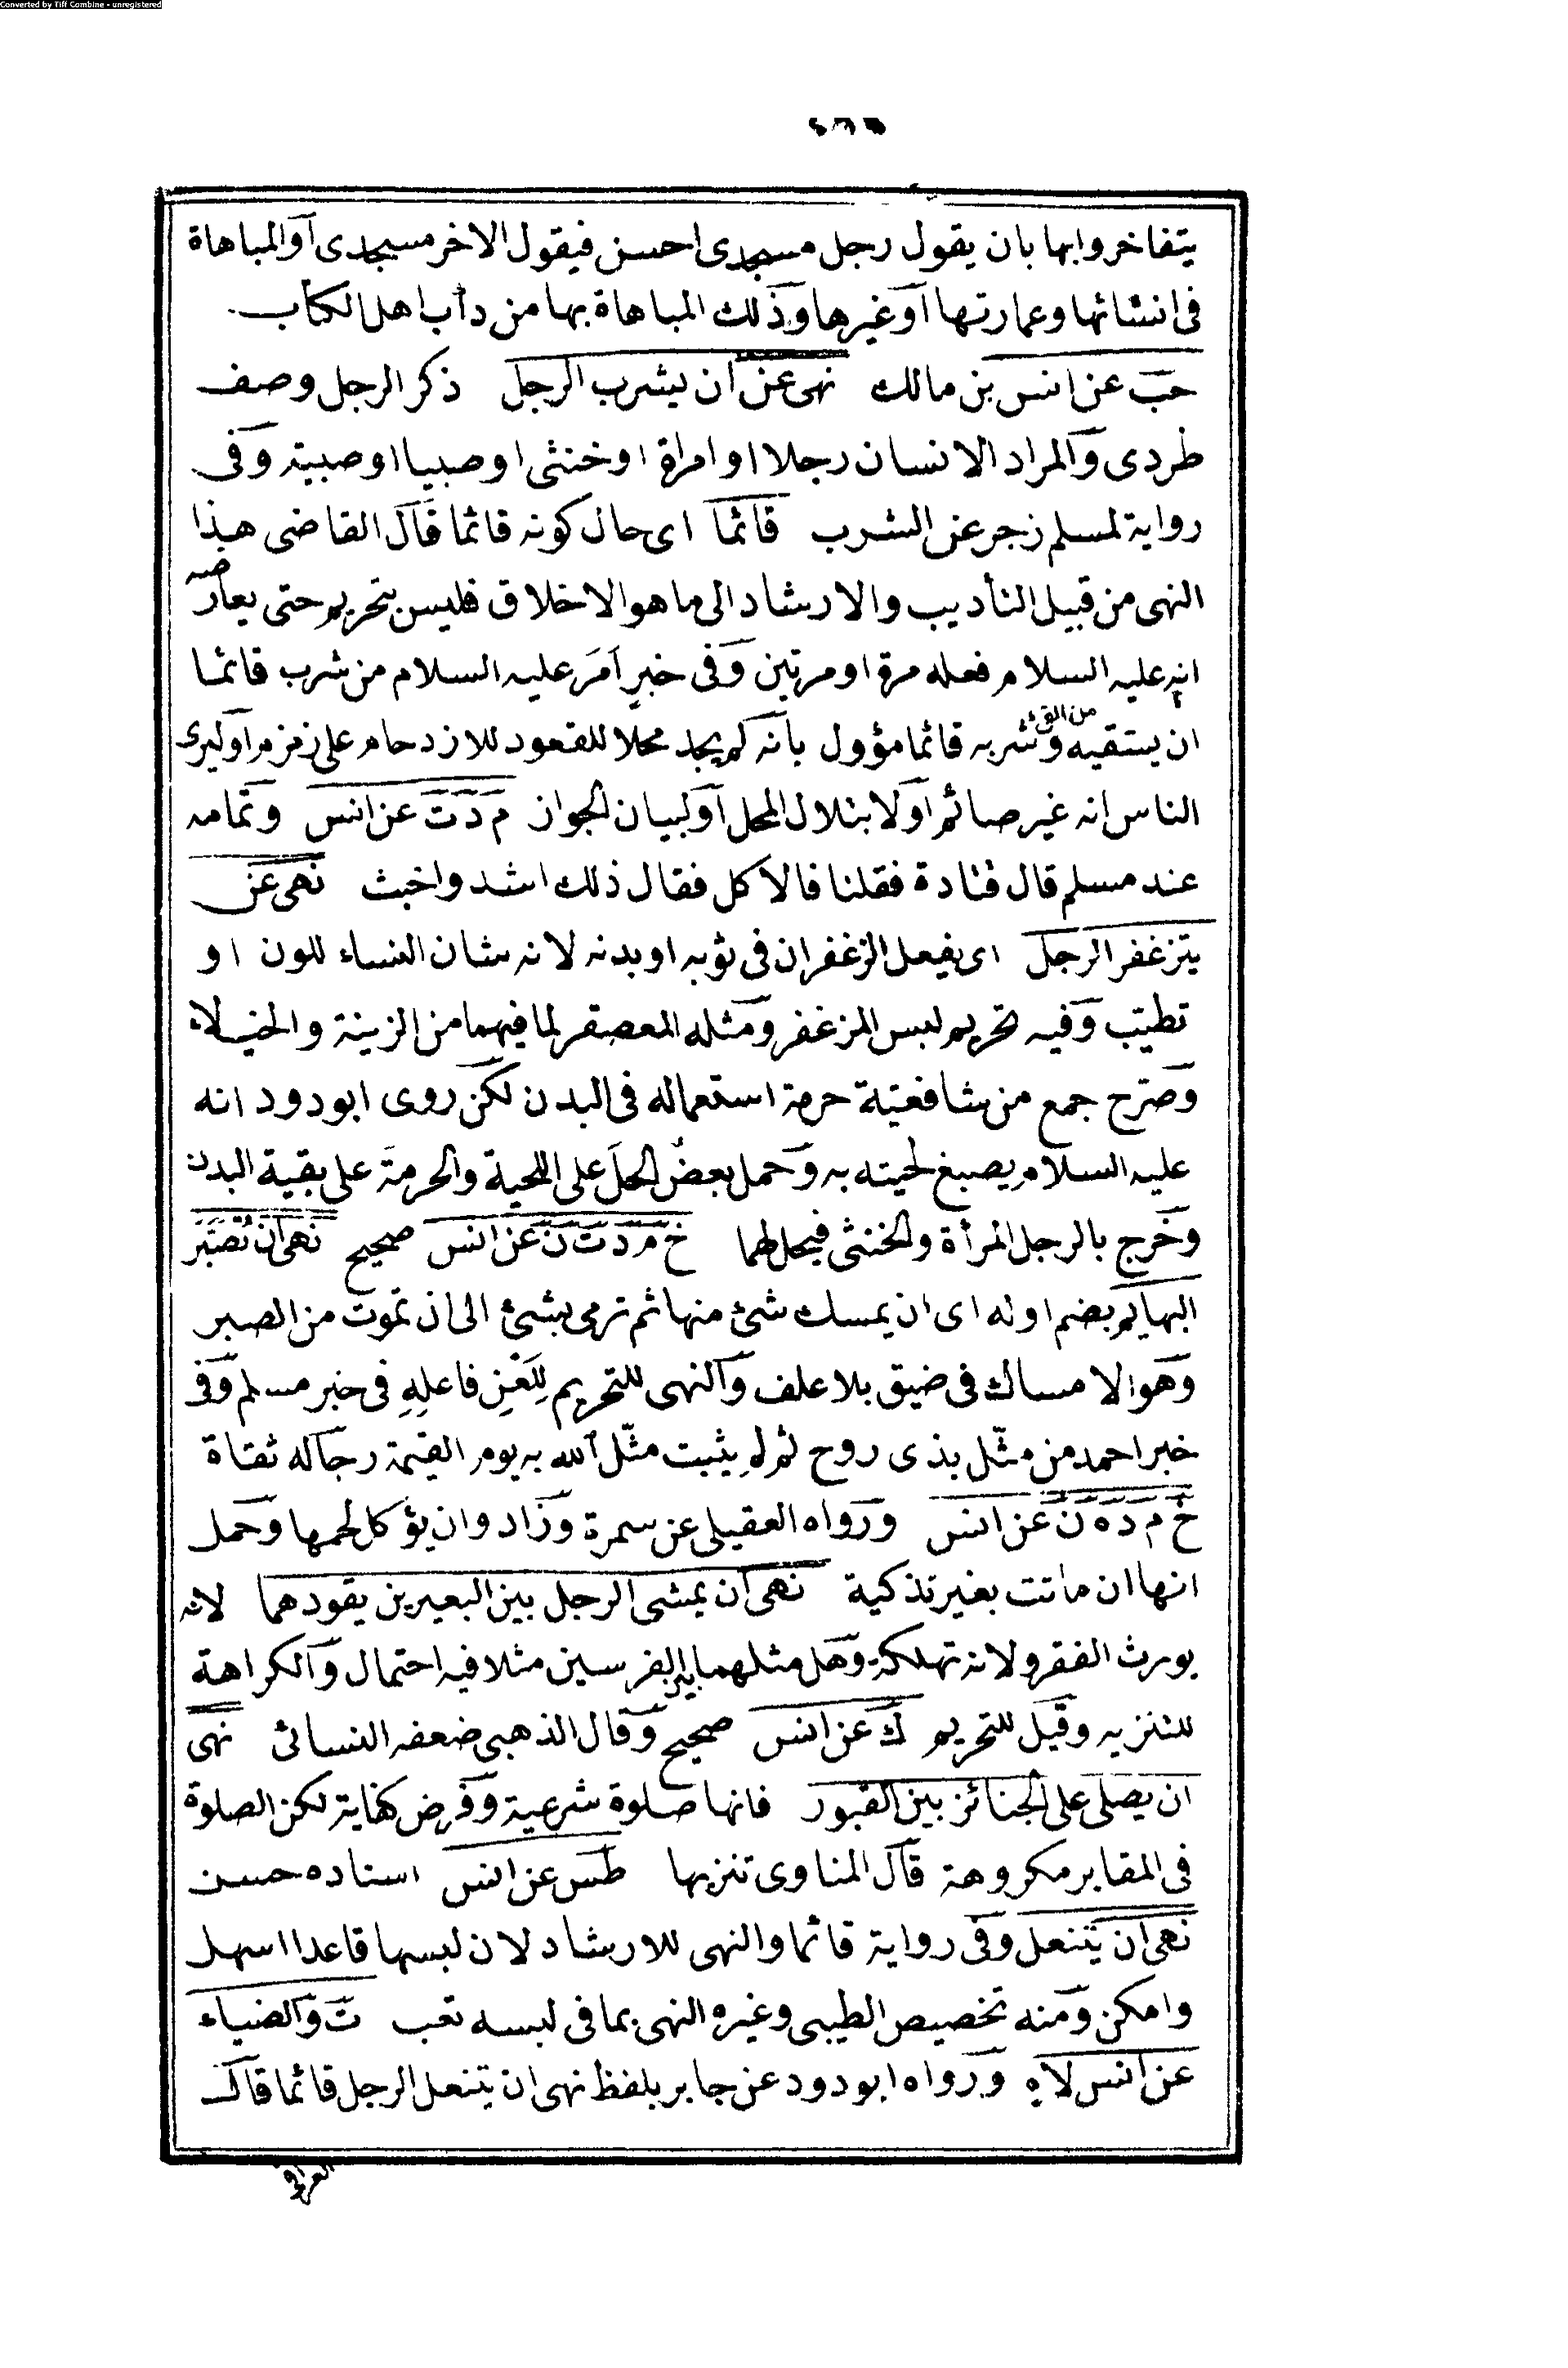 Converted by Tiff Combine - unregistered
يتفاخروا بها بان يقول رجل مسجدى احسن فيقول الاخر مسجدى او المباهاة
فى انشائها وعمارتها او غيرها وذلك المباهاة بها من دأب اهل الكتاب
حب عن انس بن مالك نهى عن ان يشرب الرجل ذكر الرجل وصف
طردى والمراد الانسان رجلا او امراة او خنثى او صبيا او صبية وفى
رواية لمسلم زجر عن الشرب قائما اى حال كونه قائما قال القاضى هذا
النهى من قبيل التأديب والارشاد الى ما هو الاخلاق فليس بتحريم حتى يعارضه
انه عليه السلام فعله مرة او مرتين وفى خبر امر عليه السلام من شرب قائما
ان يستقيه من القئ وشربه قائما مؤول بانه لم يجد محلا للقعود للازدحام على زمزم او ليرى
الناس انه غير صائم او لابتلال المحل او لبيان الجواز م د ت عن انس وتمامه
عند مسلم قال قتادة فقلنا فالاكل فقال ذلك اشد واخبث نهى عن
يتزعفر الرجل اى يفعل الزعفران فى ثوبه او بدنه لانه شان النساء للون او
تطيب وفيه تحريم لبس المزعفر ومثله المعصفر لما فيهما من الزينة والخيلاء
وصرح جمع من شافعية حرمة استعماله فى البدن لكن روى ابو دود انه
عليه السلام يصبغ لحيته به وحمل بعض الحل على اللحية والحرمة على بقية البدن
وخرج بالرجل المرأة والخنثى فيحل لهما خ م د ت ن عن انس صحيح نهى ان تصبر
البهايم بضم اوله اى ان يمسك شئ منها ثم ترمى بشئ الى ان تموت من الصبر
وهو الامساك فى ضيق بلا علف والنهى للتحريم للعن فاعله فى خبر مسلم وفى
خبر احمد من مثل بذى روح ثم لم يثبت مثل الله به يوم القيمة رجاله ثقاة
خ م د ه ن عن انس ورواه العقيلى عن سمرة وزاد وان يؤكل لحمها وحمل
انها ان ماتت بغير تذكية نهى ان يمشى الرجل بين البعيرين يقودهما لانه
يورث الفقر ولانه تهلكة وهل مثلهما بين الفرسين مثلا فيه احتمال والكراهة
للتنزيه وقيل للتحريم ك عن انس صحيح وقال الذهبى ضعفه النسائى نهى
ان يصلى على الجنائز بين القبور فانها صلوة شرعية وفرض كفاية لكن الصلوة
فى المقابر مكروهة قال المناوى تنزيها طس عن انس اسناده حسن
نهى ان يتنعل وفى رواية قائما والنهى للارشاد لان لبسها قاعدا اسهل
وامكن ومنه تخصيص الطيبى وغيره النهى بما فى لبسه تعب ت والضياء
عن انس لاه ورواه ابو دود عن جابر بلفظ نهى ان يتنعل الرجل قائما قال
العراقى